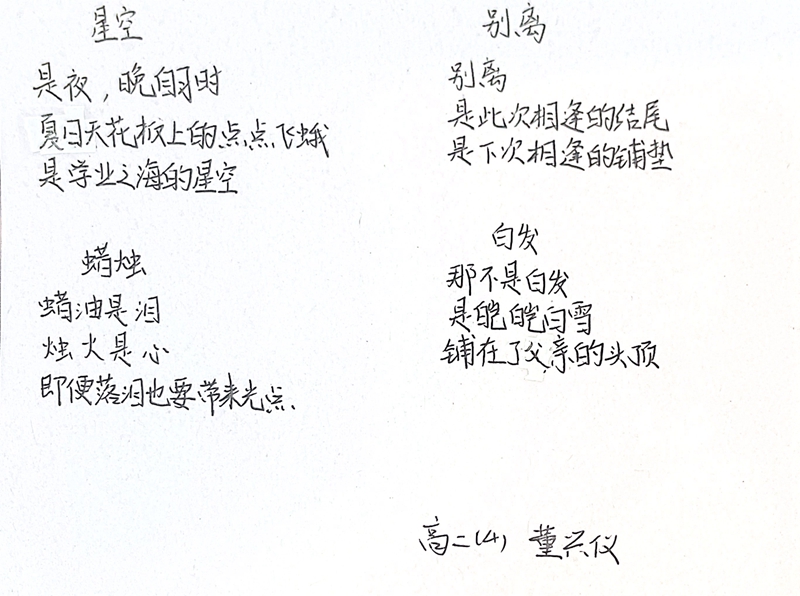 星空
是夜，晚自习时
夏日天花板上的点点飞蛾
是学业之海的星空
蜡烛
蜡油是泪
烛火是心
即便落泪也要带来光点.
别离
别离
是此次相逢的结尾
是下次相逢的铺垫
白发
那不是白发
是皑皑白雪
铺在了父亲的头顶
高二(4) 董兴仪